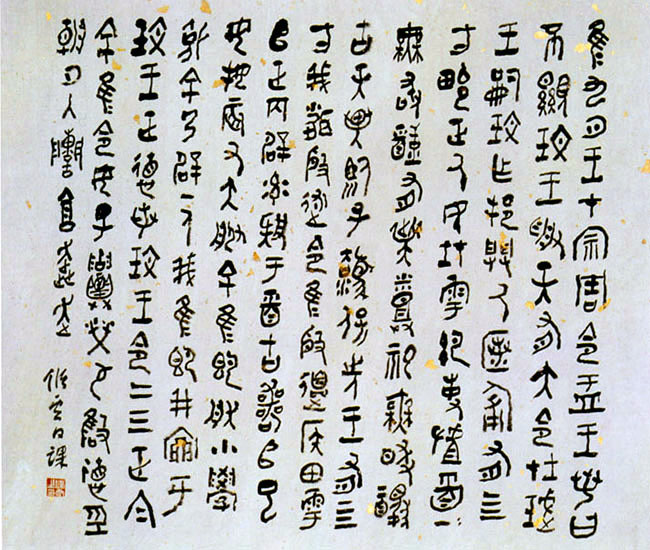 隹九月王才宗周令盂王若曰
不顯玟王受天有大令在珷
王嗣玟乍邦闢厥匿匍有四
方畯正厥民在雩御事酉
無敢有祀無敢
古天異臨子法保先王有四
方我聞殷述令隹殷邊侯田雩
正百辟率肄于酉古喪
有大服余隹即朕小學
余乃辟一人我隹即井于
玟王正德若玟王令二三正今
余隹令女盂召榮敬雝德巠
朝夕入讕享奔走
日課